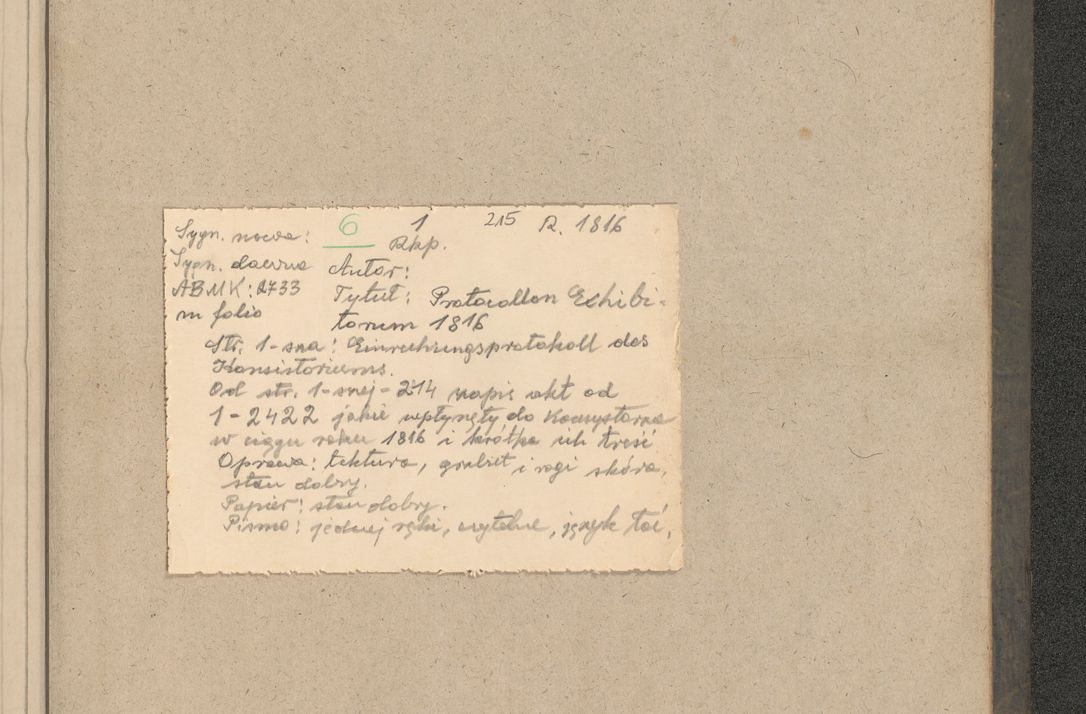 Sygn. nowa: 6 1 215 R. 1816
Rkp.
Sygn. dawna Autor:
ABMK: 2733 Tytuł: Protocollon Exhibi-
in folio torum 1816
Str. 1-sza: Einreichungsprotokoll des
Konsistoriums.
Od str. 1-szej - 214 napis akt od
1-2422 jakie wpłynęły do Konsystorza
w ciągu roku 1816 i krótka ich treść
Oprawa: tektura, grzbiet i rogi skóra,
stan dobry.
Papier: stan dobry.
Pismo: jednej ręki, czytelne, język łać.